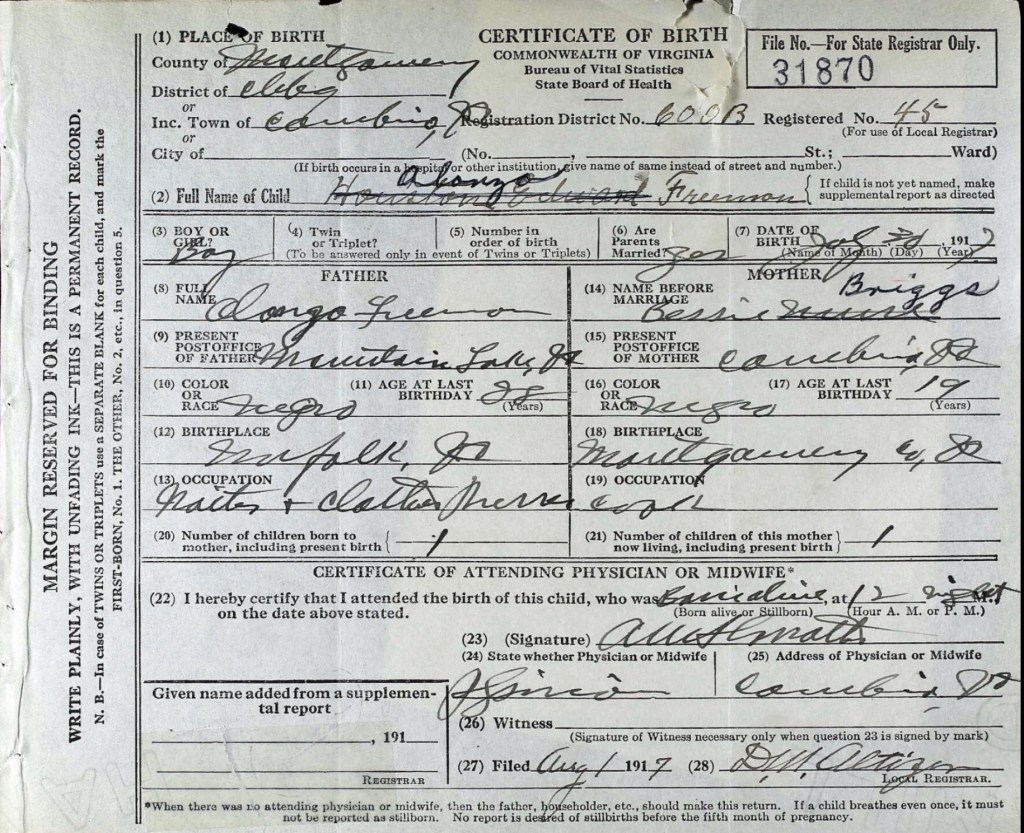 MARGIN RESERVED FOR BINDING
WRITE PLAINLY, WITH UNFADING INK—THIS IS A PERMANENT RECORD.
N. B.—In case of TWINS OR TRIPLETS use a SEPARATE BLANK for each child, and mark the
FIRST-BORN, No. 1. THE OTHER, No. 2, etc., in question 5.
(1) PLACE OF BIRTH
County of Montgomery
District of Cbbg
or
Inc. Town of Cambria, Va
or
City of
CERTIFICATE OF BIRTH
COMMONWEALTH OF VIRGINIA
Bureau of Vital Statistics
State Board of Health
File No.—For State Registrar Only.
31870
Registration District No. 600B Registered No. 45
(For use of Local Registrar)
(No. , St.; Ward)
(If birth occurs in a hospital or other institution, give name of same instead of street and number.)
Alonzo
(2) Full Name of Child Houston Edward Freemon { If child is not yet named, make
supplemental report as directed
(3) BOY OR GIRL? Boy
(4) Twin or Triplet?
(5) Number in order of birth
(To be answered only in event of Twins or Triplets)
(6) Are Parents Married? Yes
(7) DATE OF BIRTH July 1917
(Name of Month) (Day) (Year)
FATHER
(8) FULL NAME Alonzo Freemon
(9) PRESENT POSTOFFICE OF FATHER Mountain Lake, Va
(10) COLOR OR RACE Negro
(11) AGE AT LAST BIRTHDAY 28 (Years)
(12) BIRTHPLACE Norfolk, Va
(13) OCCUPATION Waiter + Clothes
(20) Number of children born to
mother, including present birth { 1
MOTHER
(14) NAME BEFORE MARRIAGE Bessie Briggs
(15) PRESENT POSTOFFICE OF MOTHER Cambria, Va
(16) COLOR OR RACE Negro
(17) AGE AT LAST BIRTHDAY 19 (Years)
(18) BIRTHPLACE Montgomery Co, Va
(19) OCCUPATION Cook
(21) Number of children of this mother
now living, including present birth } 1
CERTIFICATE OF ATTENDING PHYSICIAN OR MIDWIFE*
(22) I hereby certify that I attended the birth of this child, who was Born alive, at 12 night M.,
on the date above stated. (Born alive or Stillborn) (Hour A. M. or P. M.)
(23) (Signature)
(24) State whether Physician or Midwife
(25) Address of Physician or Midwife
Cambria, Va
Given name added from a supplemen-
tal report
, 191
REGISTRAR
(26) Witness
(Signature of Witness necessary only when question 23 is signed by mark)
(27) Filed Aug 1 1917 (28) D. W. Altizer
LOCAL REGISTRAR.
*When there was no attending physician or midwife, then the father, householder, etc., should make this return. If a child breathes even once, it must
not be reported as stillborn. No report is desired of stillbirths before the fifth month of pregnancy.